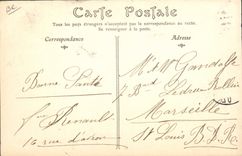 Carte Postale
Tous les pays étrangers n'acceptent pas la correspondance au recto.
Se renseigner à la poste.
Correspondance
Adresse
Bonne Santé
Renault
16 rue
Mr & Me Gandolfe
7 Bd Ledru Rollin
Marseille
St Louis B.D.R.